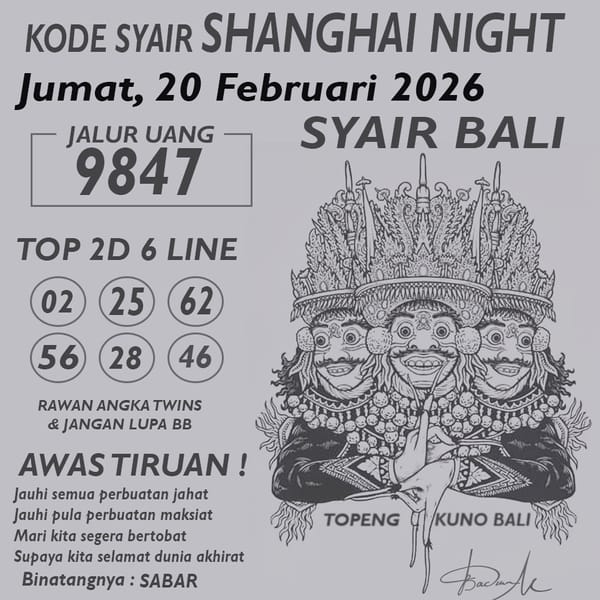 KODE SYAIR SHANGHAI NIGHT
Jumat, 20 Februari 2026
JALUR UANG
9847
SYAIR BALI
TOP 2D 6 LINE
02 25 62
56 28 46
RAWAN ANGKA TWINS
& JANGAN LUPA BB
AWAS TIRUAN !
Jauhi semua perbuatan jahat
Jauhi pula perbuatan maksiat
Mari kita segera bertobat
Supaya kita selamat dunia akhirat
Binatangnya : SABAR
TOPENG KUNO BALI